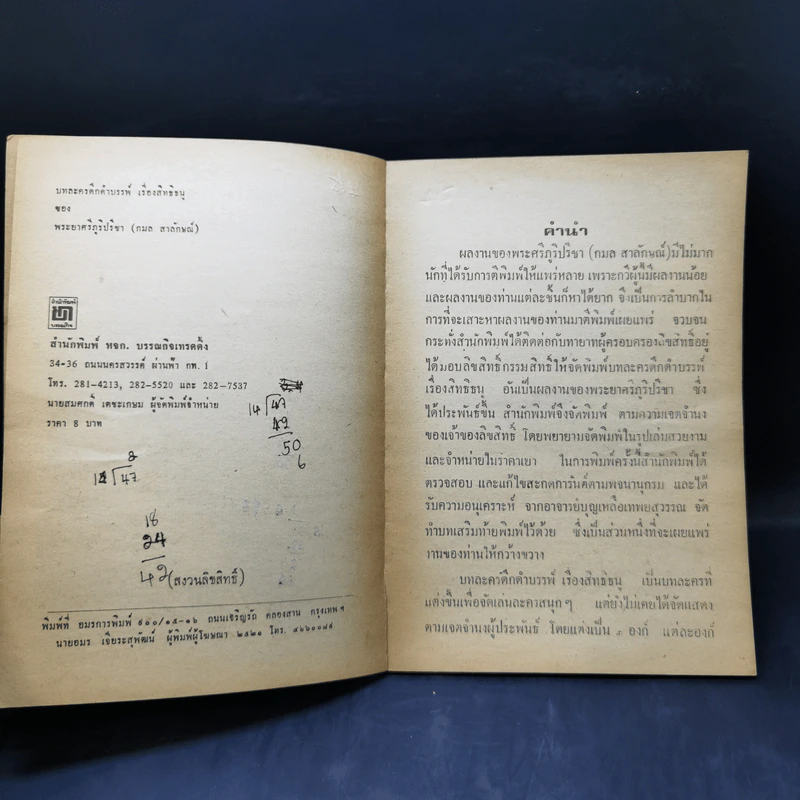 บทละครดึกดำบรรพ์ เรื่องสิทธิธนู
ของ
พระยาศรีภูริปรีชา (กมล สาลักษณ์)
สำนักพิมพ์
บรรณกิจ
สำนักพิมพ์ หจก. บรรณกิจเทรดดิ้ง
34-36 ถนนนครสวรรค์ ผ่านฟ้า กท. 1
โทร. 281-4213, 282-5520 และ 282-7537
นายสมศักดิ์ เตชะเกษม ผู้จัดพิมพ์จำหน่าย
ราคา 8 บาท
14 47
42
50
6
8
47
18
24
42
(สงวนลิขสิทธิ์)
พิมพ์ที่ อมรการพิมพ์ ๕๐๐/๑๕-๑๖ ถนนเจริญรัถ คลองสาน กรุงเทพฯ
นายอมร เจียระสุพัฒน์ ผู้พิมพ์ผู้โฆษณา ๒๕๒๑ โทร. ๔๖๖๐๐๘๕
คำนำ
ผลงานของพระศรีภูริปรีชา (กมล สาลักษณ์) มีไม่มาก
นักที่ได้รับการตีพิมพ์ให้แพร่หลาย เพราะกวีผู้นี้มีผลงานน้อย
และผลงานของท่านแต่ละชิ้นก็หาได้ยาก จึงเป็นการลำบากใน
การที่จะเสาะหาผลงานของท่านมาตีพิมพ์เผยแพร่ จวบจน
กระทั่งสำนักพิมพ์ได้ติดต่อกับทายาทผู้ครอบครองลิขสิทธิ์อยู่
ได้มอบลิขสิทธิ์กรรมสิทธิ์ให้จัดพิมพ์บทละครดึกดำบรรพ์
เรื่องสิทธิธนู อันเป็นผลงานของพระยาศรีภูริปรีชา ซึ่ง
ได้ประพันธ์ขึ้น สำนักพิมพ์จึงจัดพิมพ์ ตามความเจตจำนง
ของเจ้าของลิขสิทธิ์ โดยพยายามจัดพิมพ์ในรูปเล่มสวยงาม
และจำหน่ายในราคาเยา ในการพิมพ์ครั้งนี้สำนักพิมพ์ได้
ตรวจสอบ และแก้ไขสะกดการันต์ตามพจนานุกรม และได้
รับความอนุเคราะห์ จากอาจารย์บุญเหลือเทพยสุวรรณ จัด
ทำบทเสริมท้ายพิมพ์ไว้ด้วย ซึ่งเป็นส่วนหนึ่งที่จะเผยแพร่
งานของท่านให้กว้างขวาง
บทละครดึกดำบรรพ์ เรื่องสิทธิธนู เป็นบทละครที่
แต่งขึ้นเพื่อจัดเล่นละครสนุกๆ แต่ยังไม่เคยได้จัดแสดง
ตามเจตจำนงผู้ประพันธ์ โดยแต่งเป็น องก์ แต่ละองก์